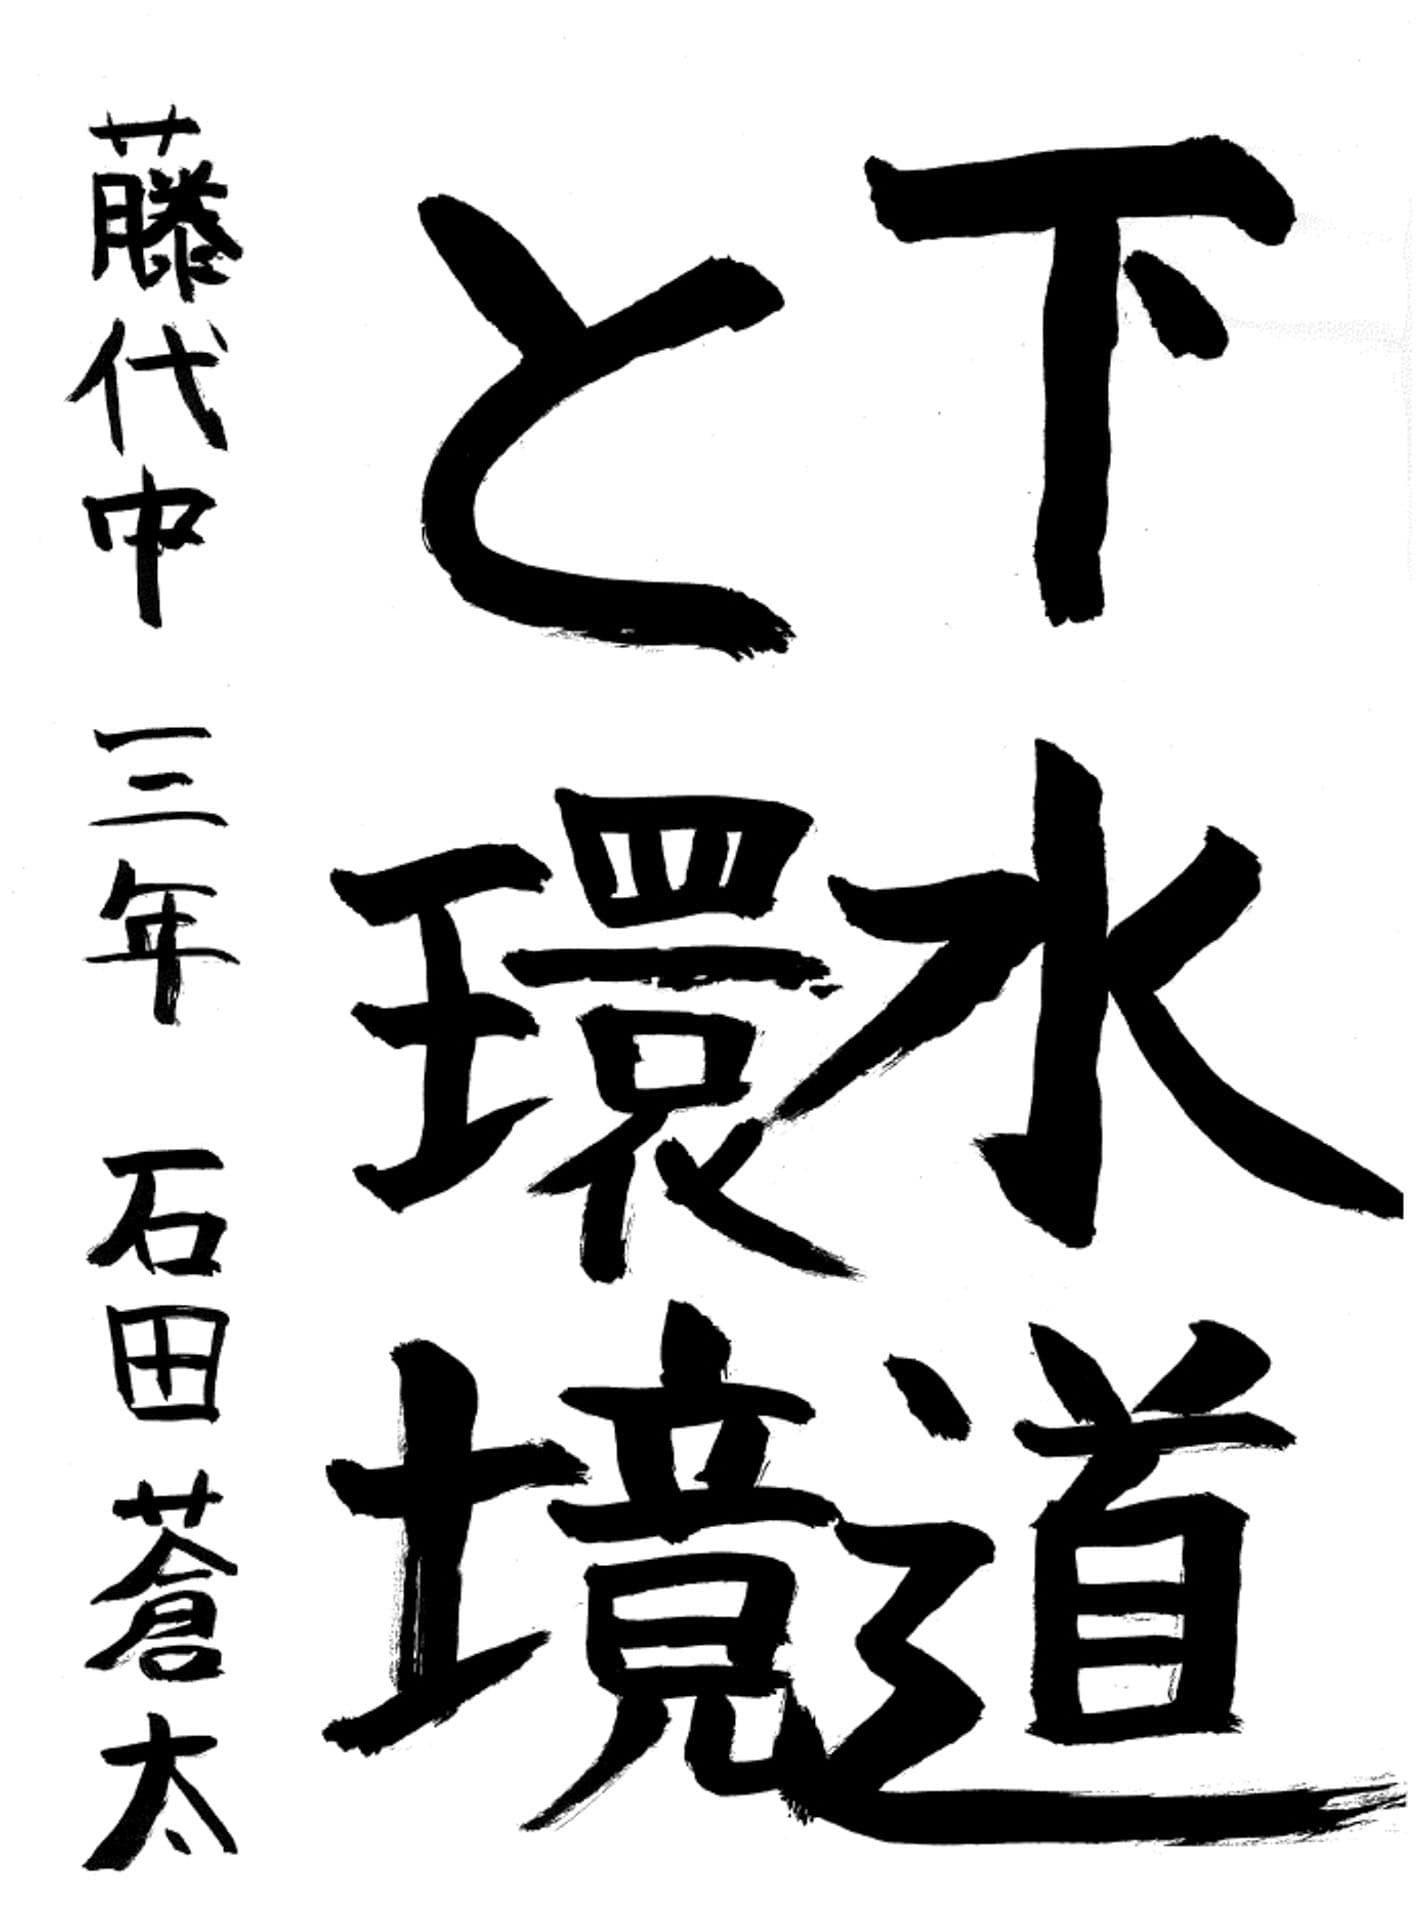 下水道
と環境
藤代中 三年 石田蒼太